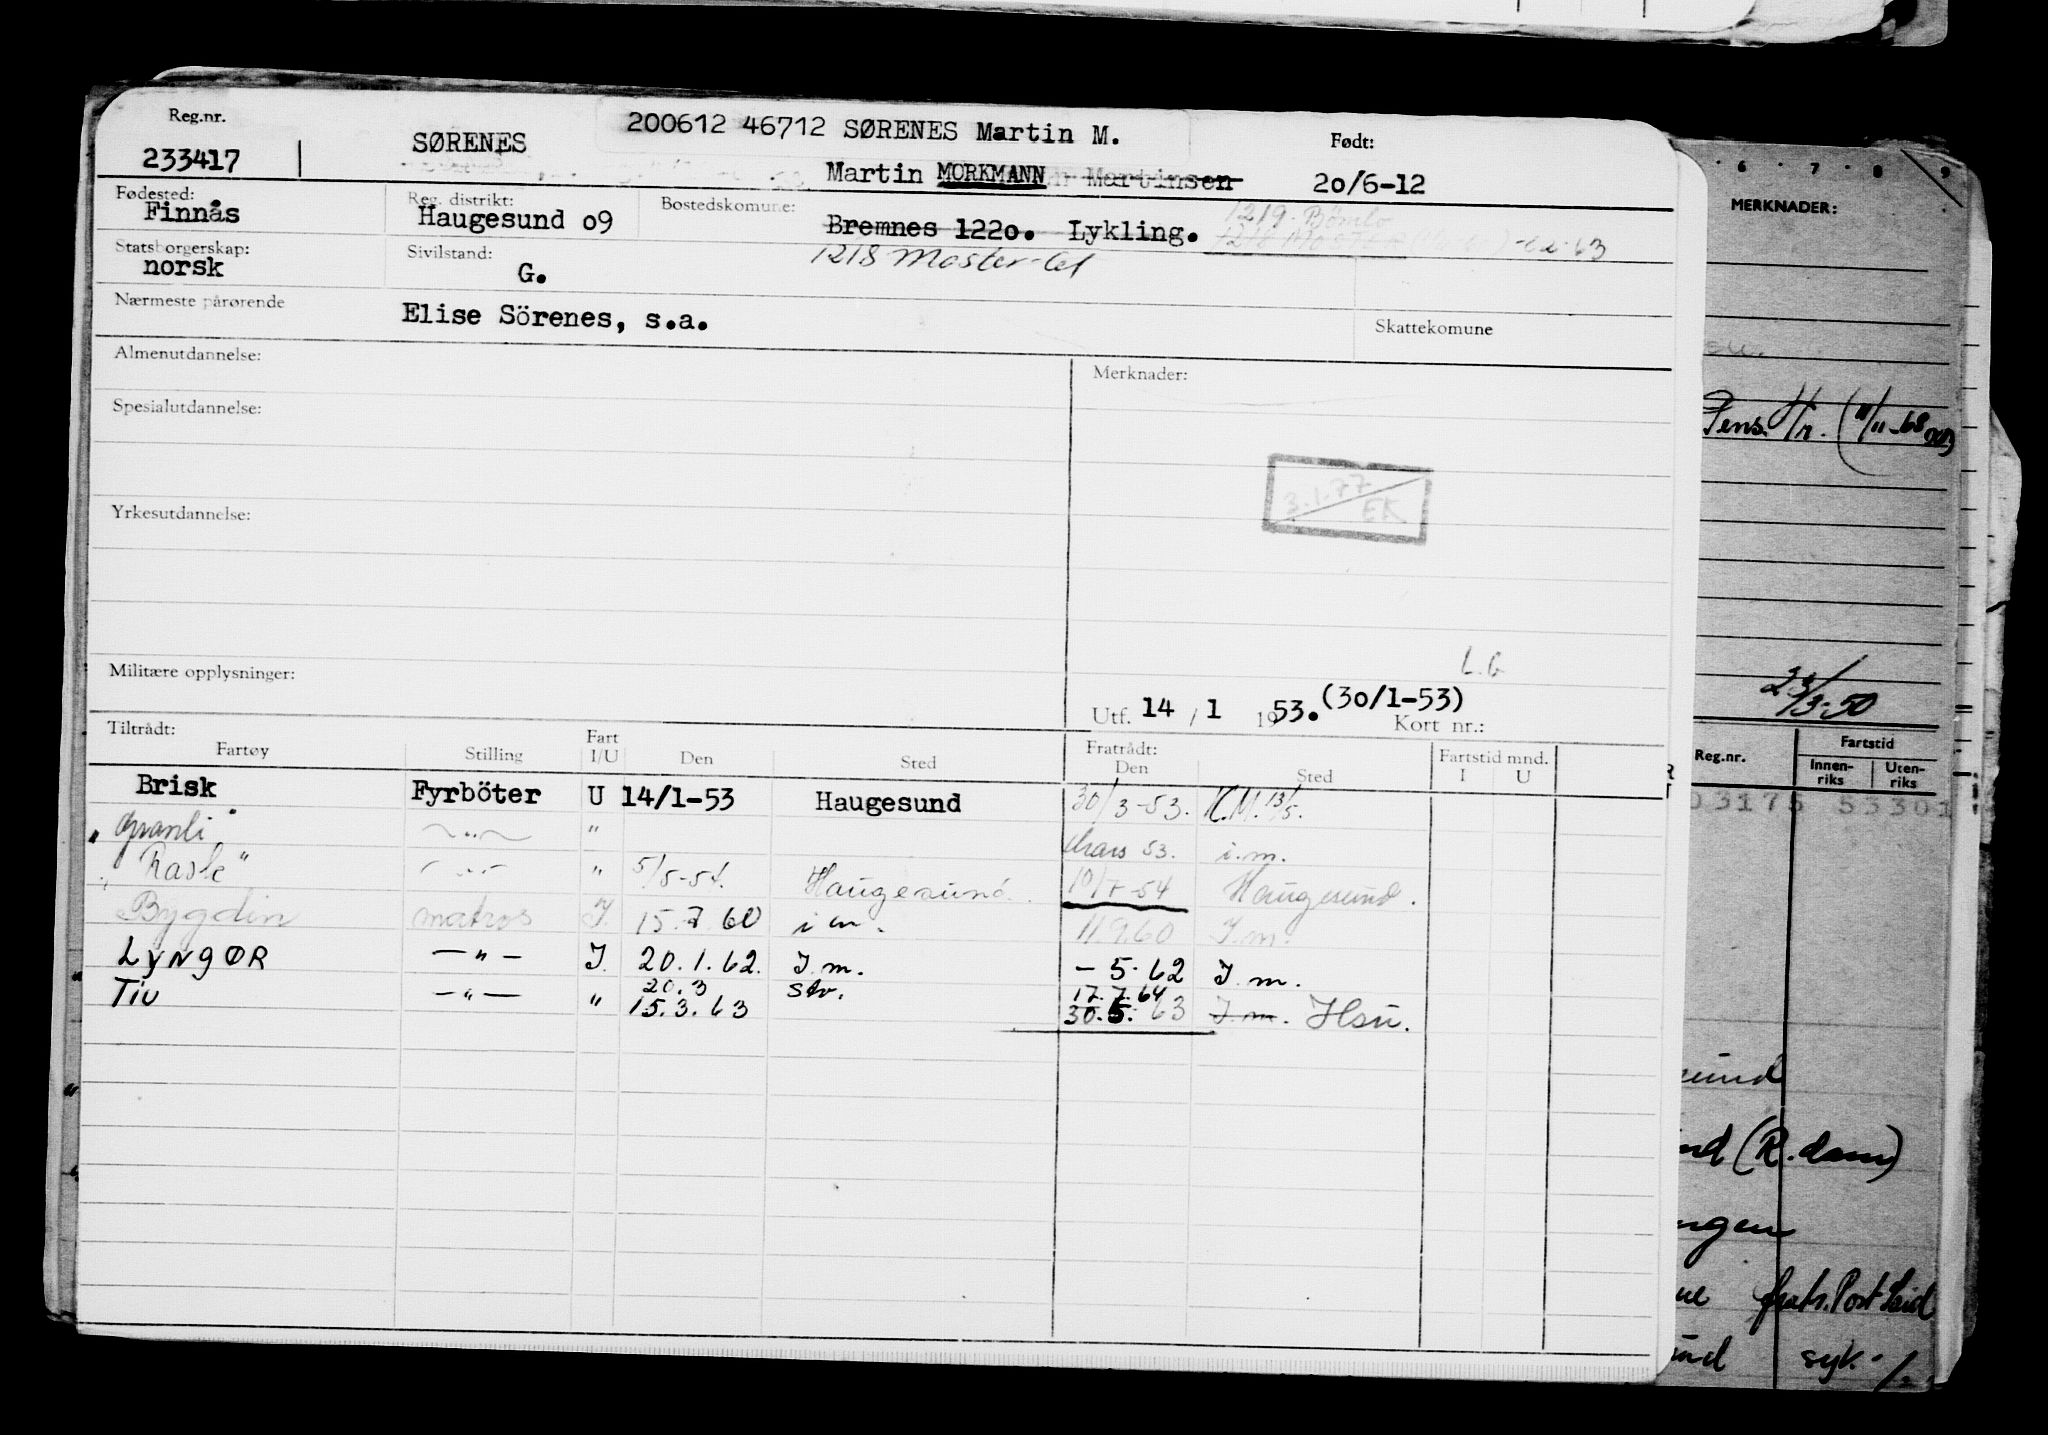 Reg.nr.
233417
SØRENES
200612 46712 SØRENES Martin M.
Martin MORKMANN Martinsen
Født:
20/6-12
Fødested:
Finnås
Reg. distrikt:
Haugesund o9
Bostedskomune:
Bremnes 122o. Lykling.
1219. Bömlo
1218 MOSTER -63
1218 Moster-
Statsborgerskap:
norsk
Sivilstand:
G.
Nærmeste pårørende
Elise Sörenes, s.a.
Skattekomune
Almenutdannelse:
Merknader:
Spesialutdannelse:
3.1.77
EK
Yrkesutdannelse:
L.G
Militære opplysninger:
Utf. 14 / 1 1953. (30/1-53)
Kort nr.:
Tiltrådt:
Fratrådt:
Fartøy Stilling Fart I/U Den Sted Den Sted Fartstid mnd. I U
Brisk Fyrböter U 14/1-53 Haugesund 30/3-53. K.M. 13/5.
"Granli" — " — " Mars 53. i.m.
"Rasle" — " — " 5/5-54. Haugesund. 10/7-54 Haugesund.
Bygdin matros I. 15.7.60 i m. 11.9.60 I.m.
LyngØR — " — I. 20.1.62. I.m. - 5.62 I.m.
20.3 17.7.64
Tiu — " — " 15.3.63 Stv. 30.5.63 I.m. Hsu.
6 7 8 9
MERKNADER:
Pens. Hr. (11/11-68
23/3-50
Reg.nr.
Fartstid
Innen-
riks
Uten-
riks
03175 53301
und
nd (R.dam)
ngen
ne fratr. Post Said
und syk.